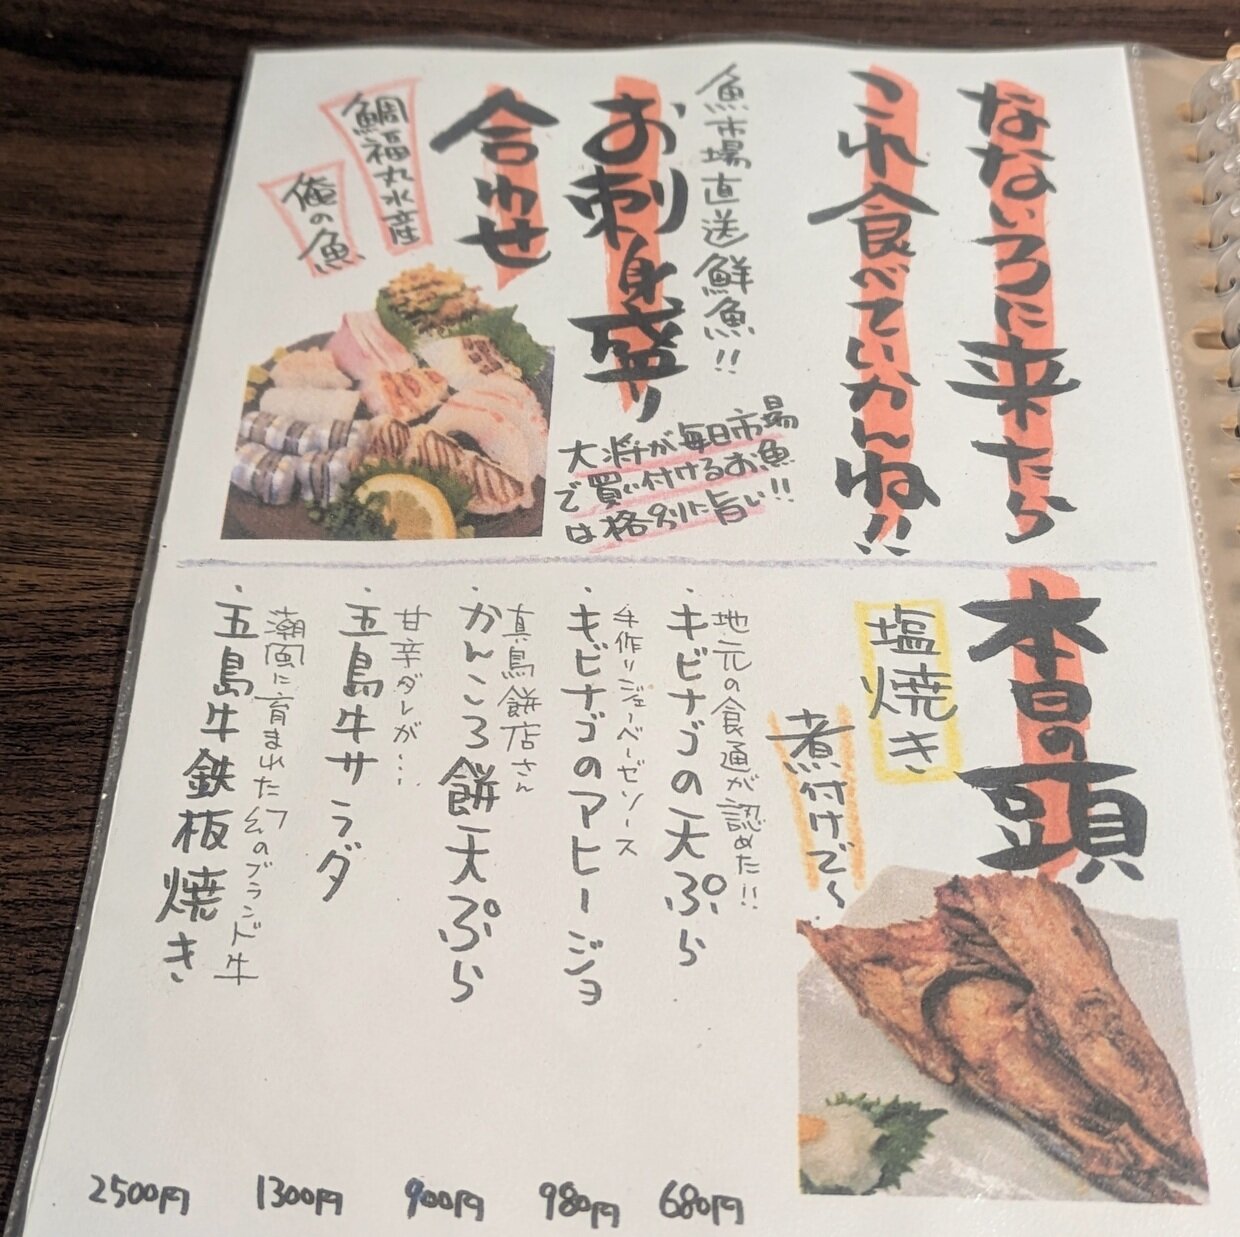 なないろに来たら
これ食べていかんね!!
魚市場直送鮮魚!!
お刺身盛り
合わせ
鯛福丸水産
俺の魚
大将が毎日市場
で買い付けるお魚
は格別に旨い!!
本日の頭
塩焼き
煮付けで〜
地元の食通が認めた!!
・キビナゴの天ぷら
680円
手作りジェーベーゼソース
・キビナゴのアヒージョ
980円
真鳥餅店さん
・かんころ餅天ぷら
900円
甘辛ダレが…
・五島牛サラダ
1300円
潮風に育まれた幻のブランド牛
・五島牛鉄板焼き
2500円